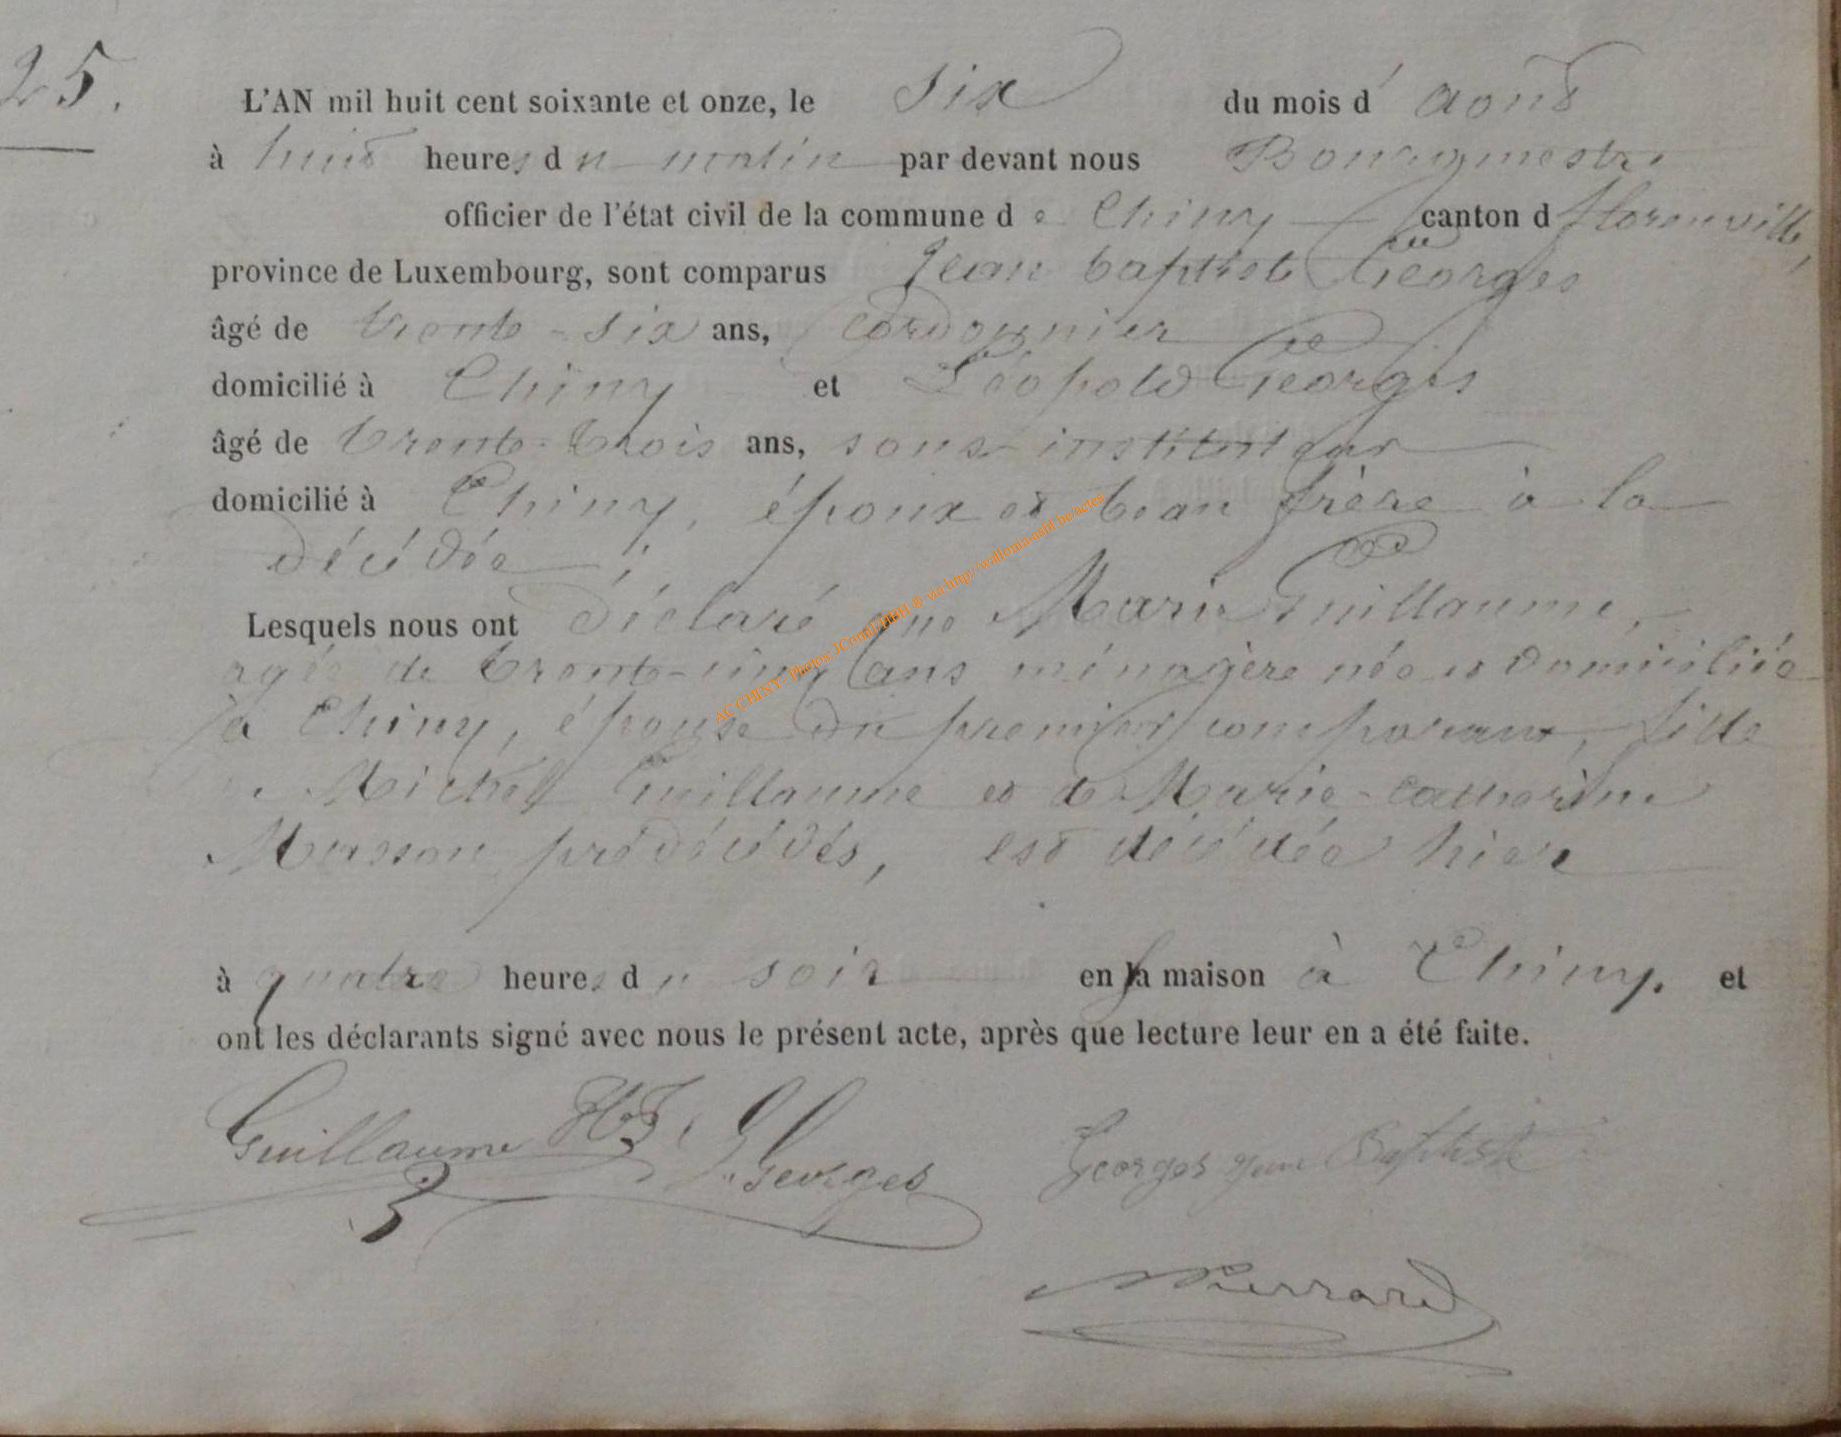 25.
L'AN mil huit cent soixante et onze, le six du mois d' aout
à huit heures du matin par devant nous Bourgmestre
officier de l'état civil de la commune de Chiny canton d florenville,
province de Luxembourg, sont comparus Jean baptiste Georges
âgé de trente-six ans, cordonnier
domicilié à Chiny et Léopold Georges
âgé de trente-trois ans, sous-instituteur
domicilié à Chiny, époux et beau frère à la
décédée ;
Lesquels nous ont déclaré que Marie Guillaume,
agée de trente-cinq ans ménagère née et domiciliée
à Chiny, épouse du premier comparant, fille
Michel Guillaume et de Marie-Catherine
Masson prédécédés, est décédée hier
à quatre heures du soir en sa maison à Chiny. et
ont les déclarants signé avec nous le présent acte, après que lecture leur en a été faite.
Guillaume L. Georges Georges Jean Baptiste
Pierrard
AC CHINY: Photos JComLHBH ® via http://wallonia-asbl.be/actes